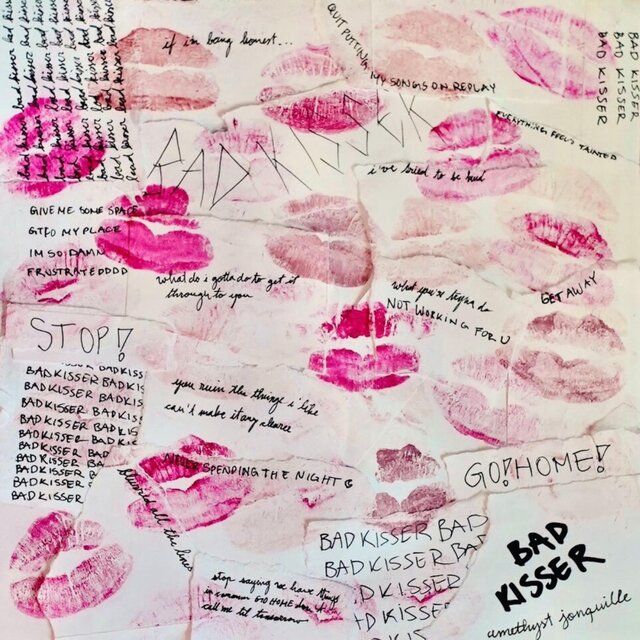 bad kisser bad kisser bad kisser
bad kisser bad kisser bad kisser
bad kisser bad kisser bad kisser
bad kisser bad kisser bad kisser
if i'm being honest...
QUIT PUTTING
MY SONGS ON REPLAY
BAD KISSER
BAD KISSER
BAD KISSER
EVERYTHING FEELS TAINTED
BAD KISSER
i've tried to be kind
GIVE ME SOME SPACE
GTFO MY PLACE
IM SO DAMN
FRUSTRATEDDDD
what do i gotta do to get it
through to you
what you're tryna do
NOT WORKING FOR U
GET AWAY
STOP!
BAD KISS
BAD KISSER BAD KIS
BAD KISSER BAD KIS
BAD KISSER BAD KIS
BAD KISSER BAD KIS
BAD KISSER BAD KI
BAD KISSER BA
BAD KISSER B
BAD KISSER B
BAD KISSER
you ruin the things i like
can't make it any clearer
SPENDING THE NIGHT
all the lines
GO! HOME!
BAD KISSER BAD
BAD KISSER BA
D KISSER
D KISSER
KISS
stop saying we have things
in common GO HOME
call me til tomorrow
BAD
KISSER
amethyst jonquille